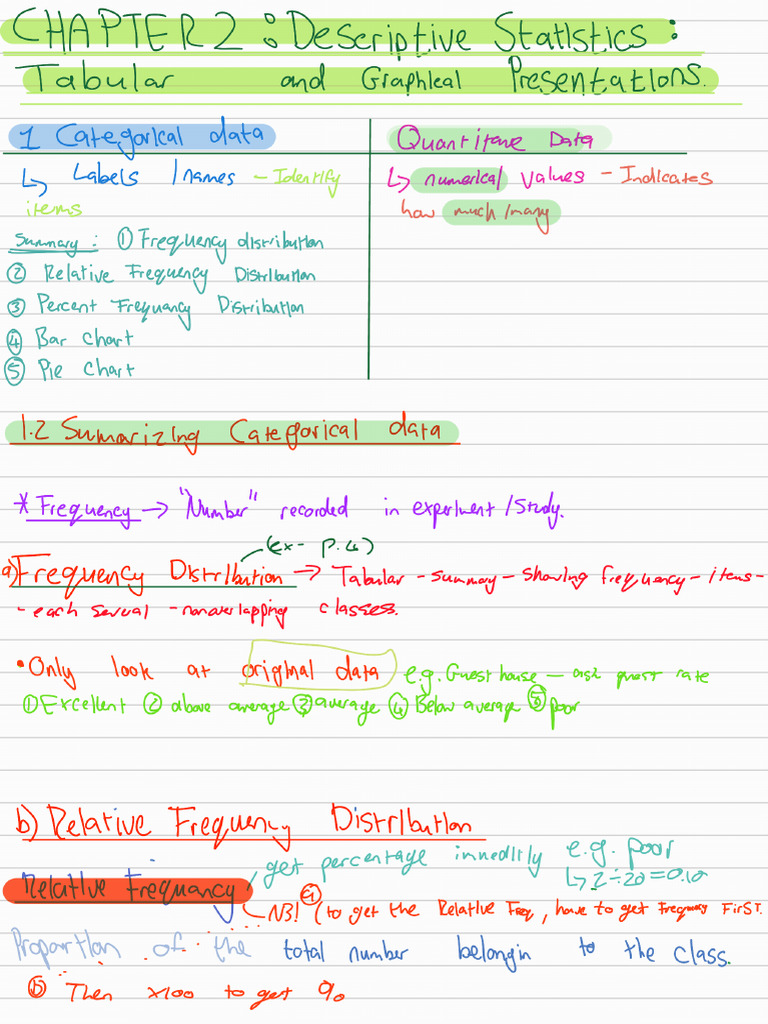 CHAPTER 2 : Descriptive Statistics :
Tabular and Graphical Presentations.
1 Categorical data
↳ Labels / names - Identify
items
Summary : ① Frequency distribution
② Relative Frequency Distribution
③ Percent Frequancy Distribution
④ Bar chart
⑤ Pie chart
Quantitave Data
↳ numerical values - Indicates
how much/many
1.2 Summarizing Categorical data
* Frequency → "Number" recorded in experiment /Study.
(ex- p.4)
a) Frequency Distribution → Tabular - summary - showing frequency - items -
- each several - nonoverlapping classes.
• Only look at original data e.g. Guest house - ask guest rate
① Excellent ② above average ③ average ④ Below average ⑤ poor
b) Relative Frequency Distribution
get percentage immeditly e.g. poor
↳ 2÷20=0.10
Relative Frequancy
NB! ⓐ (to get the Relative Freq, have to get Frequency FIRST.
Proportion of the total number belongin to the class.
ⓑ Then x100 to get %